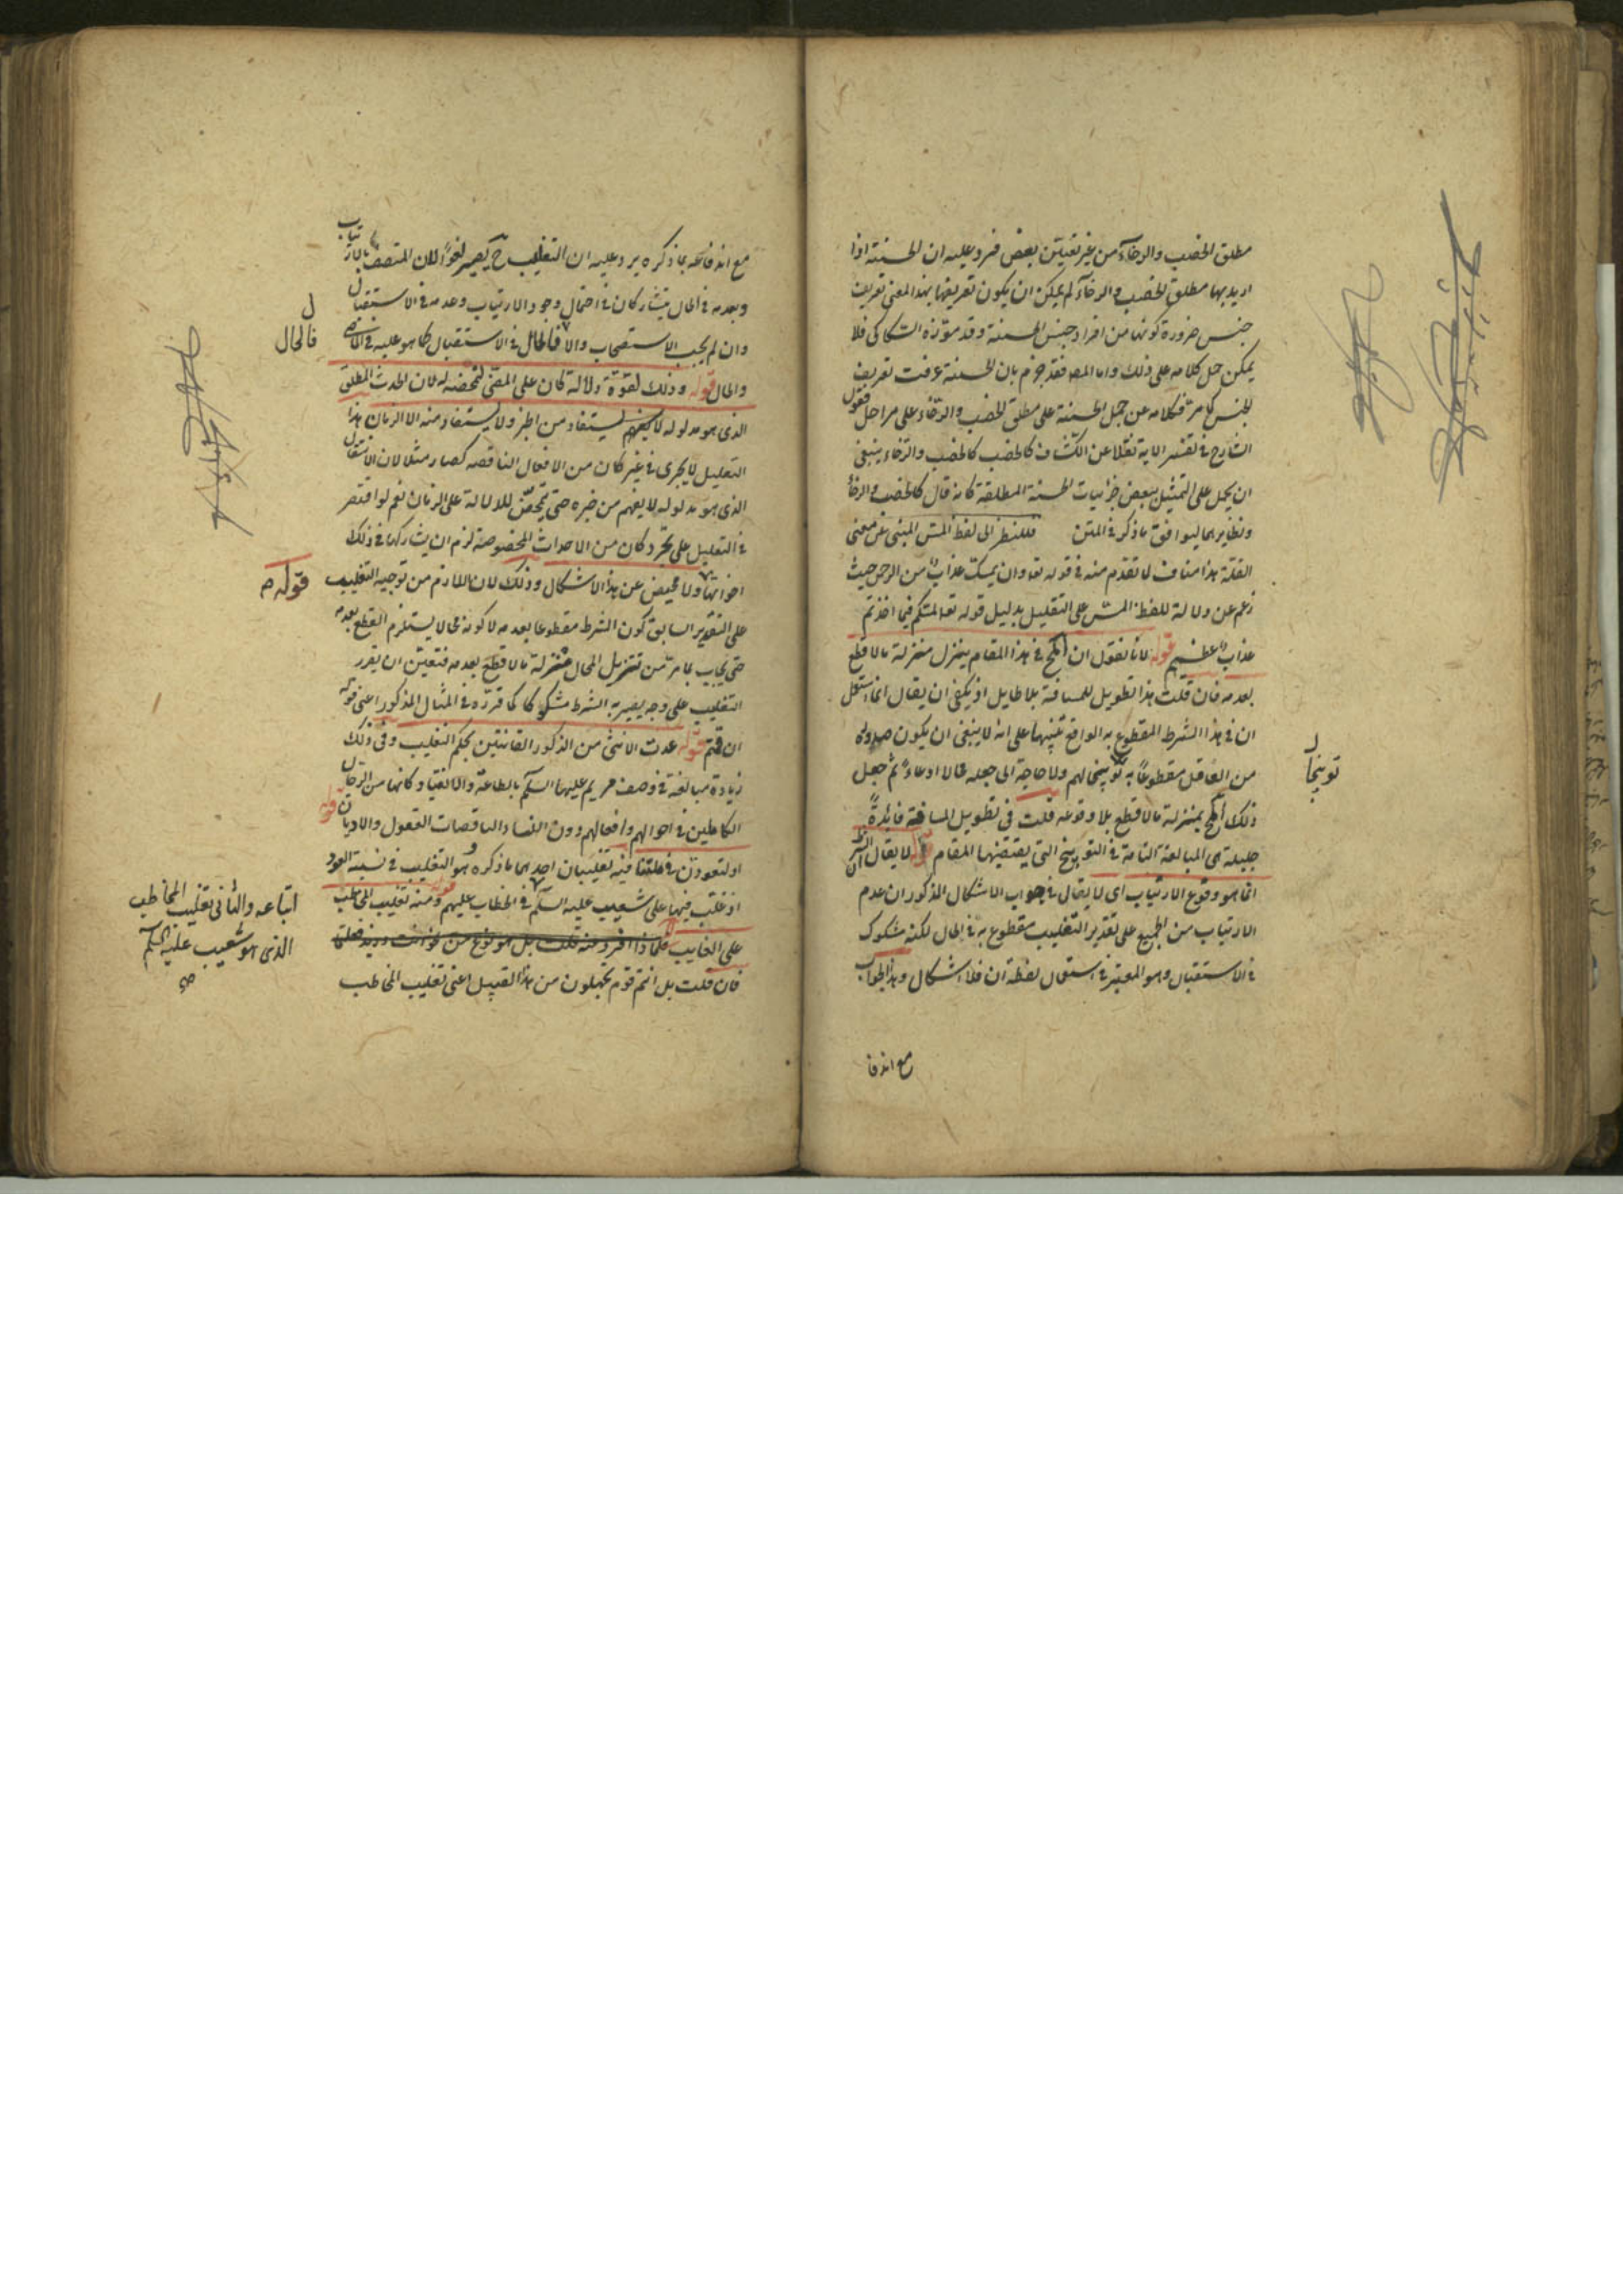 مطلق الخصب والرخاء من غير تعيين بعض فرد عليه ان الحسنة اذا
اريد بها مطلق الخصب والرخاء لم يمكن ان يكون تعريفها بهذا المعنى تعريف
جنس ضرورة كونها من افراد جنس الحسنة وقد جوّزه السكاكى فلا
يمكن حمل كلامه على ذلك واما المص فقد جزم بان الحسنة عرفت تعريف
الجنس كما مر فكلامه عن حمل الحسنة على مطلق الخصب والرخاء على مراحل فقول
الشارح فى تفسير الاية نقلا عن الكشاف كالخصب والرخاء ينبغى
ان يحمل على التمثيل ببعض جزئيات الحسنة المطلقة كانه قال كالخصب والرخاء
ونظايرهما ليوافق ما ذكر فى المتن فللنظر الى لفظ المس المبنى عن معنى
القلة هذا مناف لما تقدم منه فى قوله تعا وان يمسك عذاب من الرحمن حيث
زعم عن دلالة للفظ المس على التقليل بدليل قوله تعا لمسكم فيما اخذتم
عذاب عظيم قوله لانا نقول ان المح فى هذا المقام ينزل منزلة ما لا قطع
بعدمه فان قلت هذا تطويل للمسافة بلا طايل اذ يكفى ان يقال انما استعمل
ان فى هذا الشرط المقطوع به الواقع تنبيها على انه لا ينبغى ان يكون صدوره
من العاقل مقطوعا به توبيخا لهم ولا حاجة الى جعله محالا ادعاء ثم جعل
ذلك المح بمنزلة ما لا قطع بلا وقوعه قلت فى تطويل المسافة فائدة
جليلة هى المبالغة التامة فى التوبيخ التى يقتضيها المقام قوله لا يقال
انما هو وقوع الارتياب اى لا يقال فى جواب الاشكال المذكور ان عدم
الارتياب من الجميع على تقدير التغليب مقطوع به فى الحال لكنه مشكوك
فى الاستقبال وهو المعتبر فى استعمال لفظة ان فلا اشكال وهذا الجواب
مع انه فا
توبيخا
مع انه فا بما ذكره يرد عليه ان التغليب ح يصير لغوا لان المتصف بالارتياب
وبعدمه فى الحال يتشاركان فى احتمال وجود الارتياب وعدمه فى الاستقبال
وان لم يجب الاستصحاب والا فالحال فى الاستقبال كما هو عليه فى الماضى
والحال قوله وذلك لقوة دلالة كان على المضى لتمحضه له لان الحدث المطلق
الذى هو مدلوله يستفاد من الخبر ولا يستفاد منه الا الزمان هذا
التعليل لا يجرى فى غير كان من الافعال الناقصه كصار مثلا لان الانتقال
الذى هو مدلوله لا يفهم من خبره حتى يتمحض للدلالة على الزمان نعم لو اقتصر
فى التعليل على تجرد كان من الاحداث المخصوصة لزم ان يشاركها فى ذلك
اخواتها ولا محيص عن هذا الاشكال وذلك لان اللازم من توجيه التغليب
على التقدير السابق كون الشرط مقطوعا بعدمه لا كونه محالا يستلزم القطع بعدمه
حتى يجاب بما مر من تنزيل المحال منزلة ما لا قطع بعدمه فتعين ان يقرر
التغليب على وجه يصير به الشرط مشكوكا كما قرره فى المثال المذكور اعنى قوله
ان قمتم قوله عدت الانثى من الذكور القانتين بحكم التغليب وفى ذلك
زيادة مبالغة فى وصف مريم عليها السلم بالطاعة والانقياد كانها من الرجال
الكاملين فى احوالهم وافعالهم دون النساء الناقصات العقول والاديان قوله
او لتعودن فى ملتنا فيه تغليبان احدهما ما ذكره وهو التغليب فى نسبة العود
اذ غلب فيها على شعيب عليه السلم فى الخطاب عليهم قوله ومنه تغليب المخاطب
على الغايب
فان قلت بل انتم قوم تجهلون من هذا القبيل اعنى تغليب المخاطب
فالحال
قوله
اتباعه والثانى تغليب المخاطب
الذى هو شعيب عليه السلم
صح